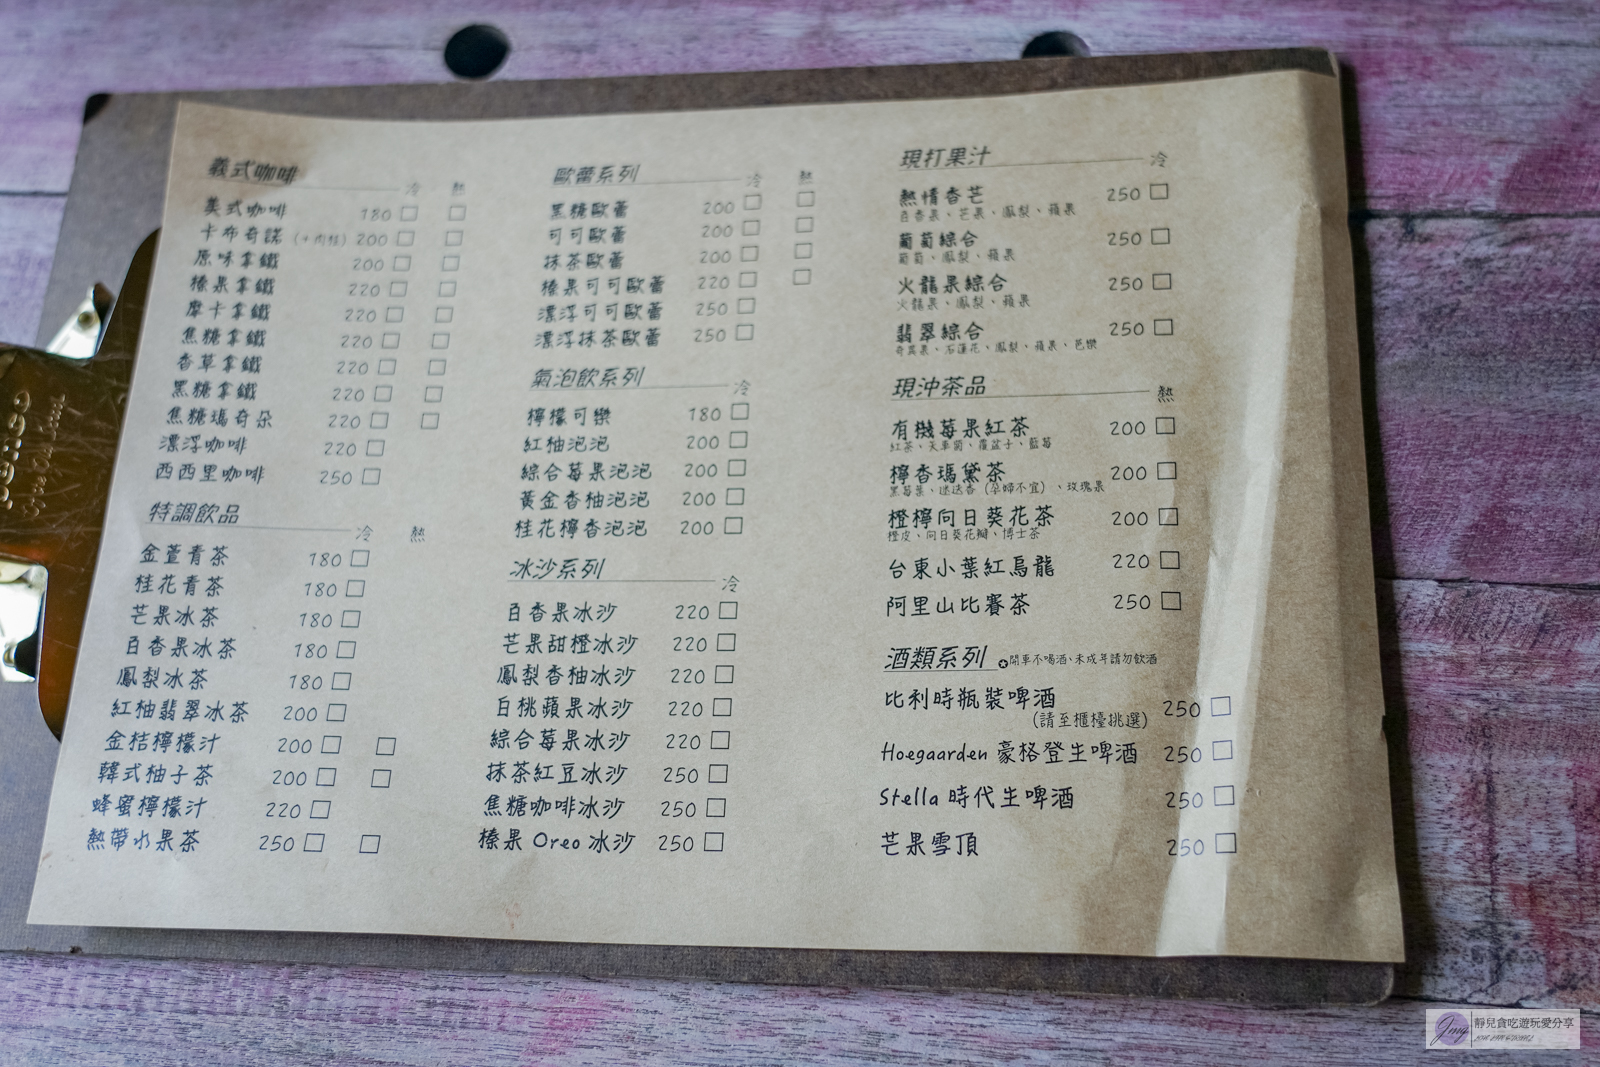 義式咖啡 冷 熱
美式咖啡 180 □ □
卡布奇諾 (+肉桂) 200 □ □
原味拿鐵 200 □ □
榛果拿鐵 220 □ □
摩卡拿鐵 220 □ □
焦糖拿鐵 220 □ □
香草拿鐵 220 □ □
黑糖拿鐵 220 □ □
焦糖瑪奇朵 220 □ □
漂浮咖啡 220 □
西西里咖啡 250 □
特調飲品 冷 熱
金萱青茶 180 □
桂花青茶 180 □
芒果冰茶 180 □
百香果冰茶 180 □
鳳梨冰茶 180 □
紅柚翡翠冰茶 200 □
金桔檸檬汁 200 □ □
韓式柚子茶 200 □ □
蜂蜜檸檬汁 220 □
熱帶水果茶 250 □ □
歐蕾系列 冷 熱
黑糖歐蕾 200 □ □
可可歐蕾 200 □ □
抹茶歐蕾 200 □ □
榛果可可歐蕾 220 □ □
漂浮可可歐蕾 250 □
漂浮抹茶歐蕾 250 □
氣泡飲系列 冷
檸檬可樂 180 □
紅柚泡泡 200 □
綜合莓果泡泡 200 □
黃金香柚泡泡 200 □
桂花檸香泡泡 200 □
冰沙系列 冷
百香果冰沙 220 □
芒果甜橙冰沙 220 □
鳳梨香柚冰沙 220 □
白桃蘋果冰沙 220 □
綜合莓果冰沙 220 □
抹茶紅豆冰沙 250 □
焦糖咖啡冰沙 250 □
榛果 Oreo 冰沙 250 □
現打果汁 冷
熱情香芒 250 □
百香果、芒果、鳳梨、蘋果
葡萄綜合 250 □
葡萄、鳳梨、蘋果
火龍果綜合 250 □
火龍果、鳳梨、蘋果
翡翠綜合 250 □
奇異果、石蓮花、鳳梨、蘋果、芭樂
現沖茶品 熱
有機莓果紅茶 200 □
紅茶、矢車菊、覆盆子、藍莓
檸香瑪黛茶 200 □
黑莓葉、迷迭香（孕婦不宜）、玫瑰果
橙檸向日葵花茶 200 □
橙皮、向日葵花瓣、博士茶
台東小葉紅烏龍 220 □
阿里山比賽茶 250 □
酒類系列 ✪開車不喝酒、未成年請勿飲酒
比利時瓶裝啤酒 250 □
(請至櫃檯挑選)
Hoegaarden 豪格登生啤酒 250 □
Stella 時代生啤酒 250 □
芒果雪頂 250 □
Jmy 靜兒貪吃遊玩愛分享